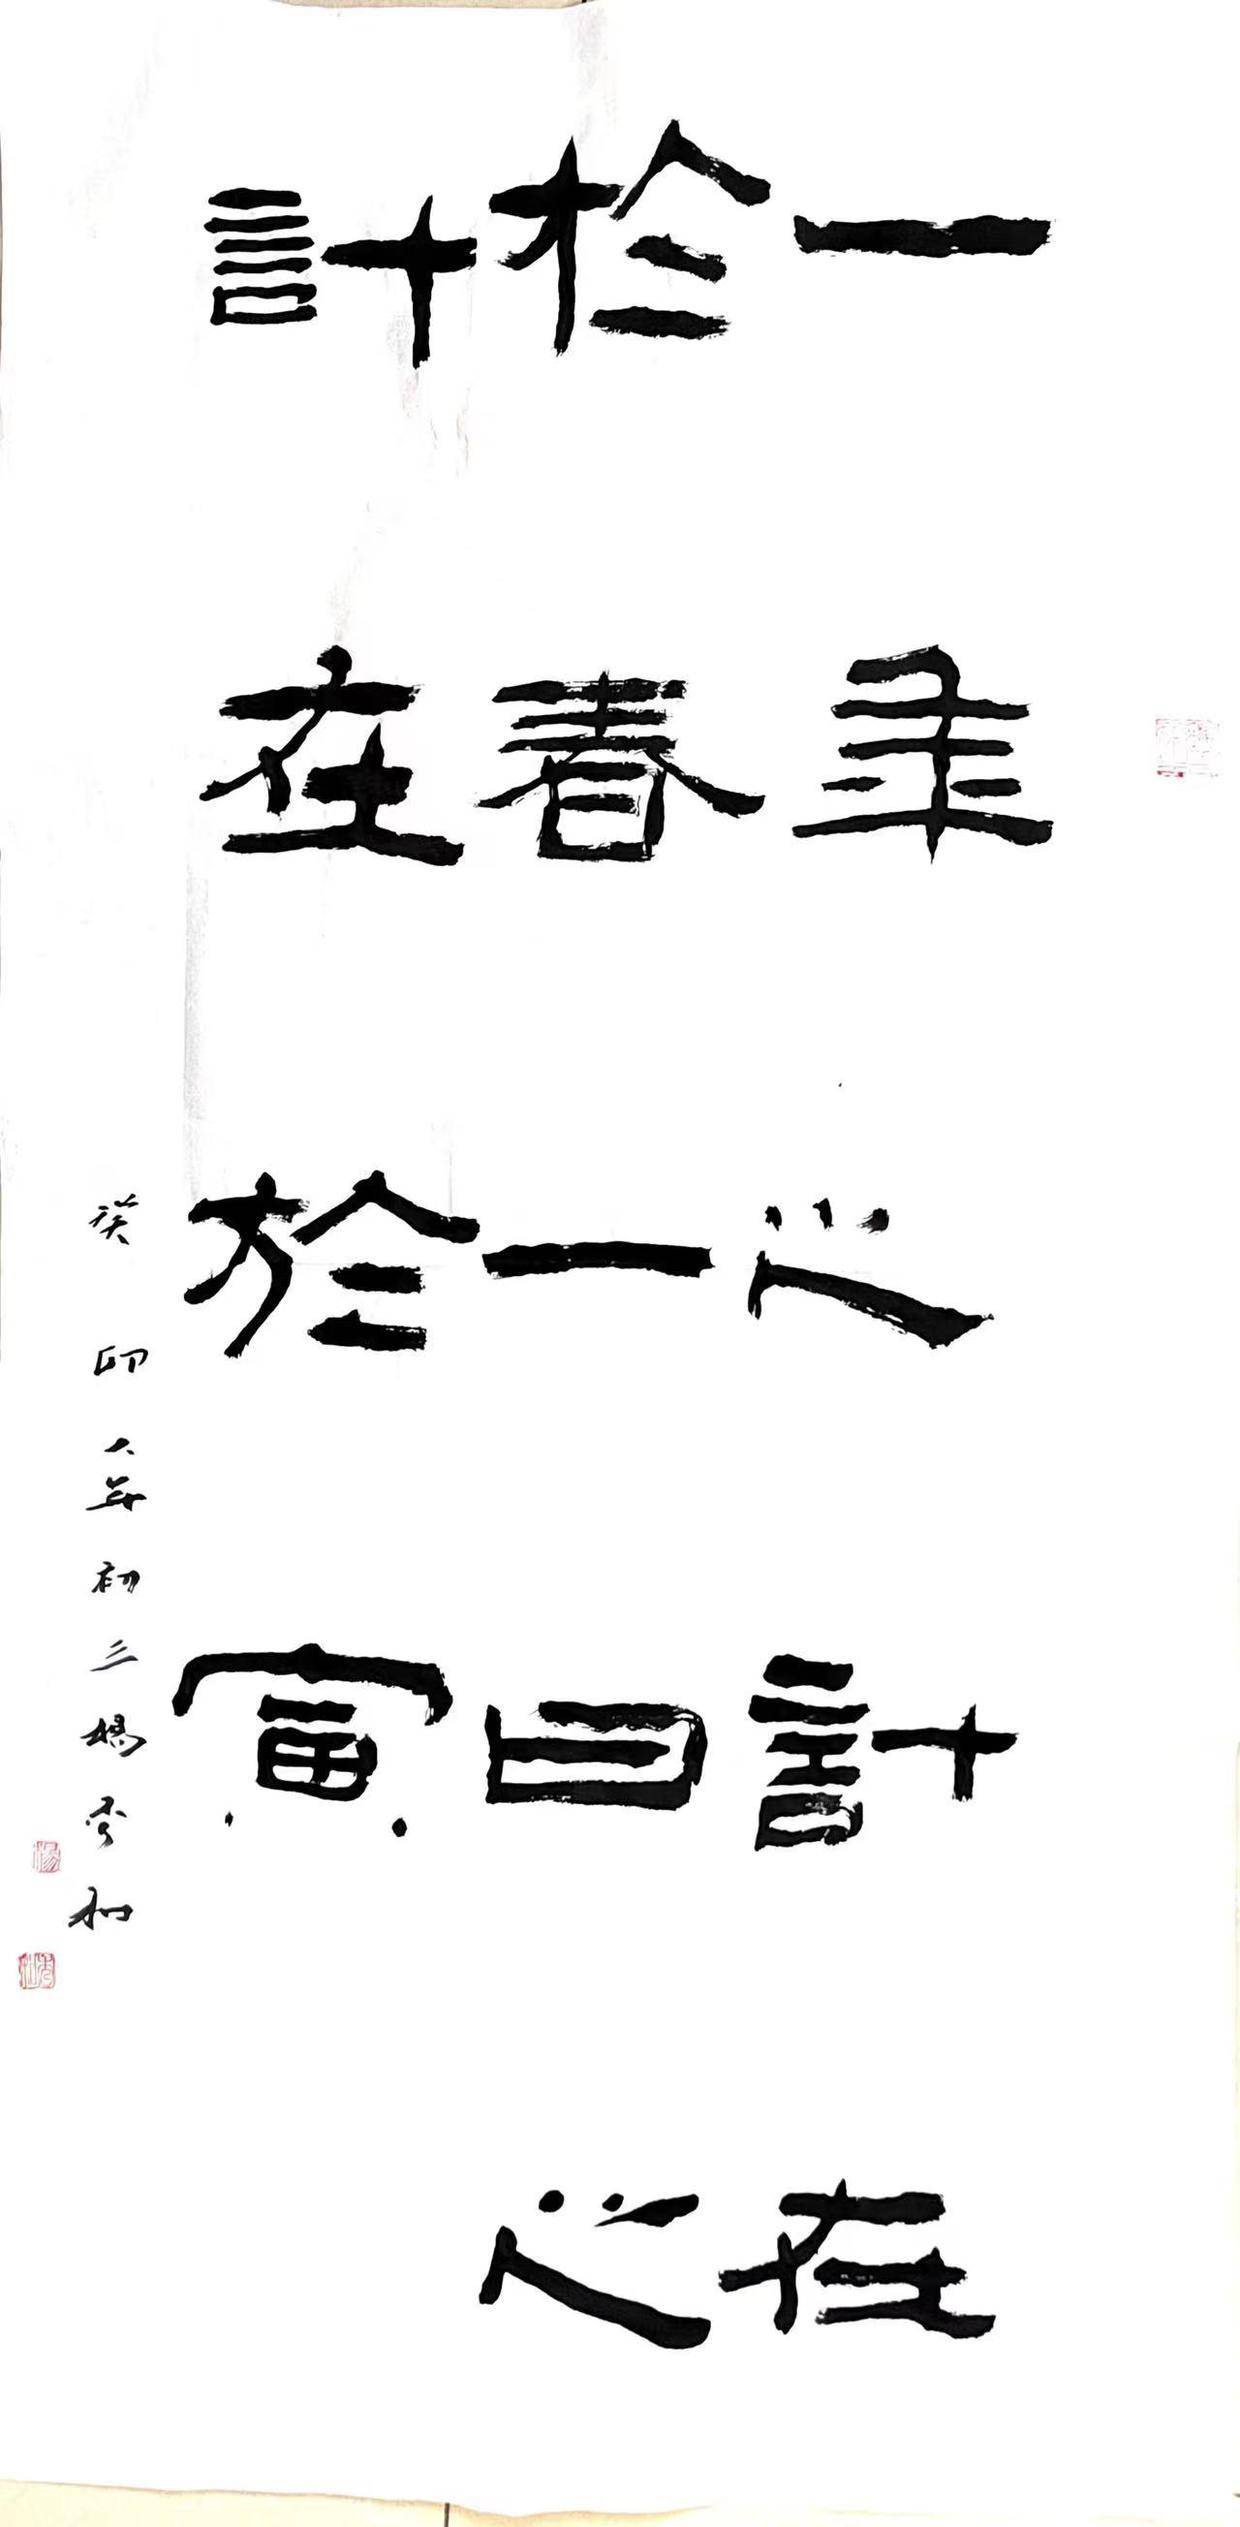 一年之計在
於春一日之
計在於寅
癸卯大年初三楊秀和